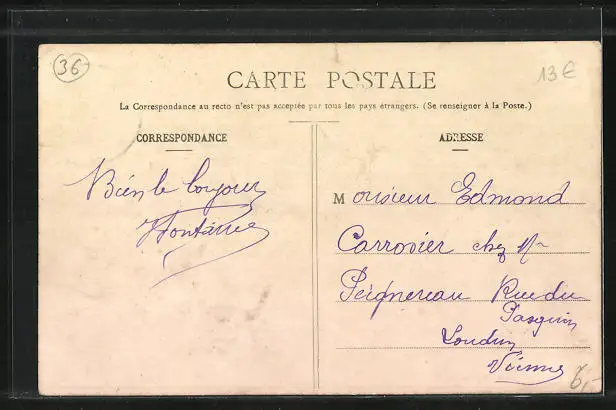 36
13 €
CARTE POSTALE
La Correspondance au recto n'est pas acceptée par tous les pays étrangers. (Se renseigner à la Poste.)
CORRESPONDANCE
Bien le bonjour
ADRESSE
Monsieur Edmond
Carrovier chez Mr
Peignereau Rue du
Pasquin
Loudun
Vienne
6,-